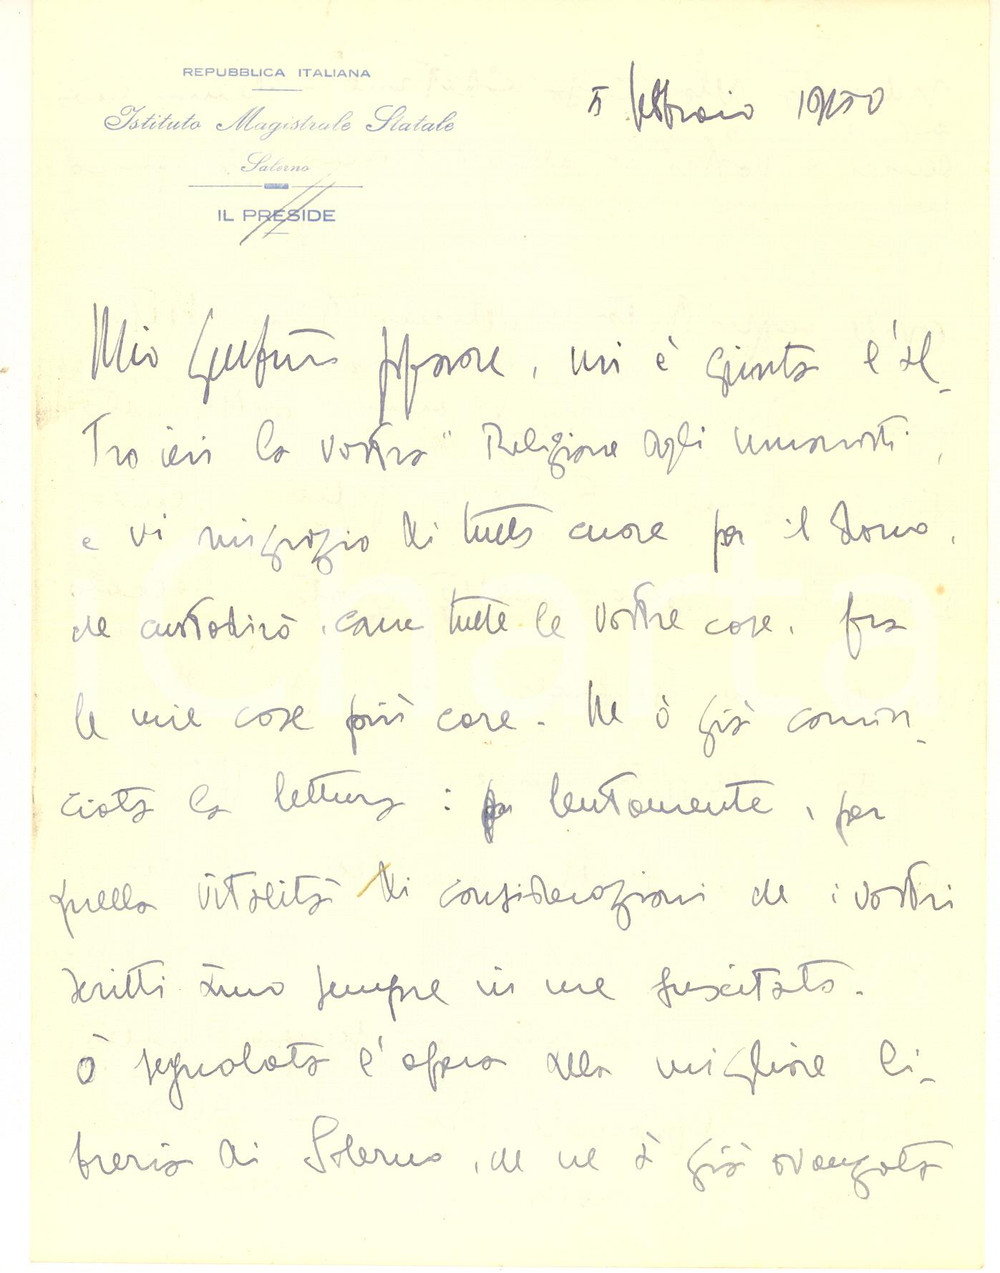 REPUBBLICA ITALIANA
Istituto Magistrale Statale
Salerno
IL PRESIDE
5 febbraio 1950
Mio professore, mi è giunta l'al-
tro ieri la vostra "Religione degli umanisti",
e vi ringrazio di tutto cuore per il dono,
che custodirò, come tutte le vostre cose, fra
le mie cose più care. Ne ò già comin-
ciata la lettura: lentamente, per
quella vitalità di considerazioni che i vostri
scritti ànno sempre in me suscitato.
Ò segnalata l'opera alla migliore li-
breria di Salerno, che ne à già avanzata
iCharta